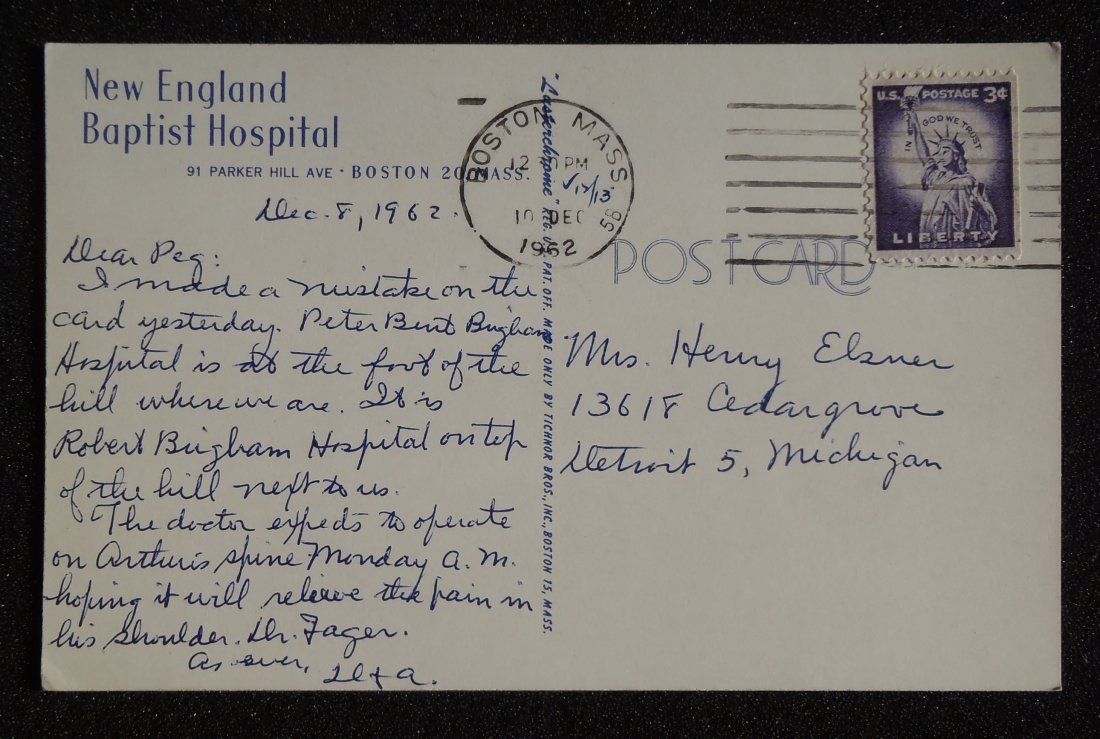 New England
Baptist Hospital
91 PARKER HILL AVE • BOSTON 20, MASS.
Dec. 8, 1962.
Dear Peg:
I made a mistake on the
card yesterday. Peter Bent Brigham
Hospital is at the foot of the
hill where we are. It is
Robert Brigham Hospital on top
of the hill next to us.
The doctor expects to operate
on Arthur's spine Monday a.m.
hoping it will relieve the pain in
his shoulder. Dr. Fager.
As ever,
"Lusterchrome" REG. U.S. PAT. OFF. MADE ONLY BY TICHNOR BROS., INC., BOSTON 15, MASS.
BOSTON, MASS.
12 PM
10 DEC
1962
56
√12/13
POST CARD
U.S. POSTAGE 3¢
IN GOD WE TRUST
LIBERTY
Mrs. Henry Elsner
13618 Cedargrove
Detroit 5, Michigan